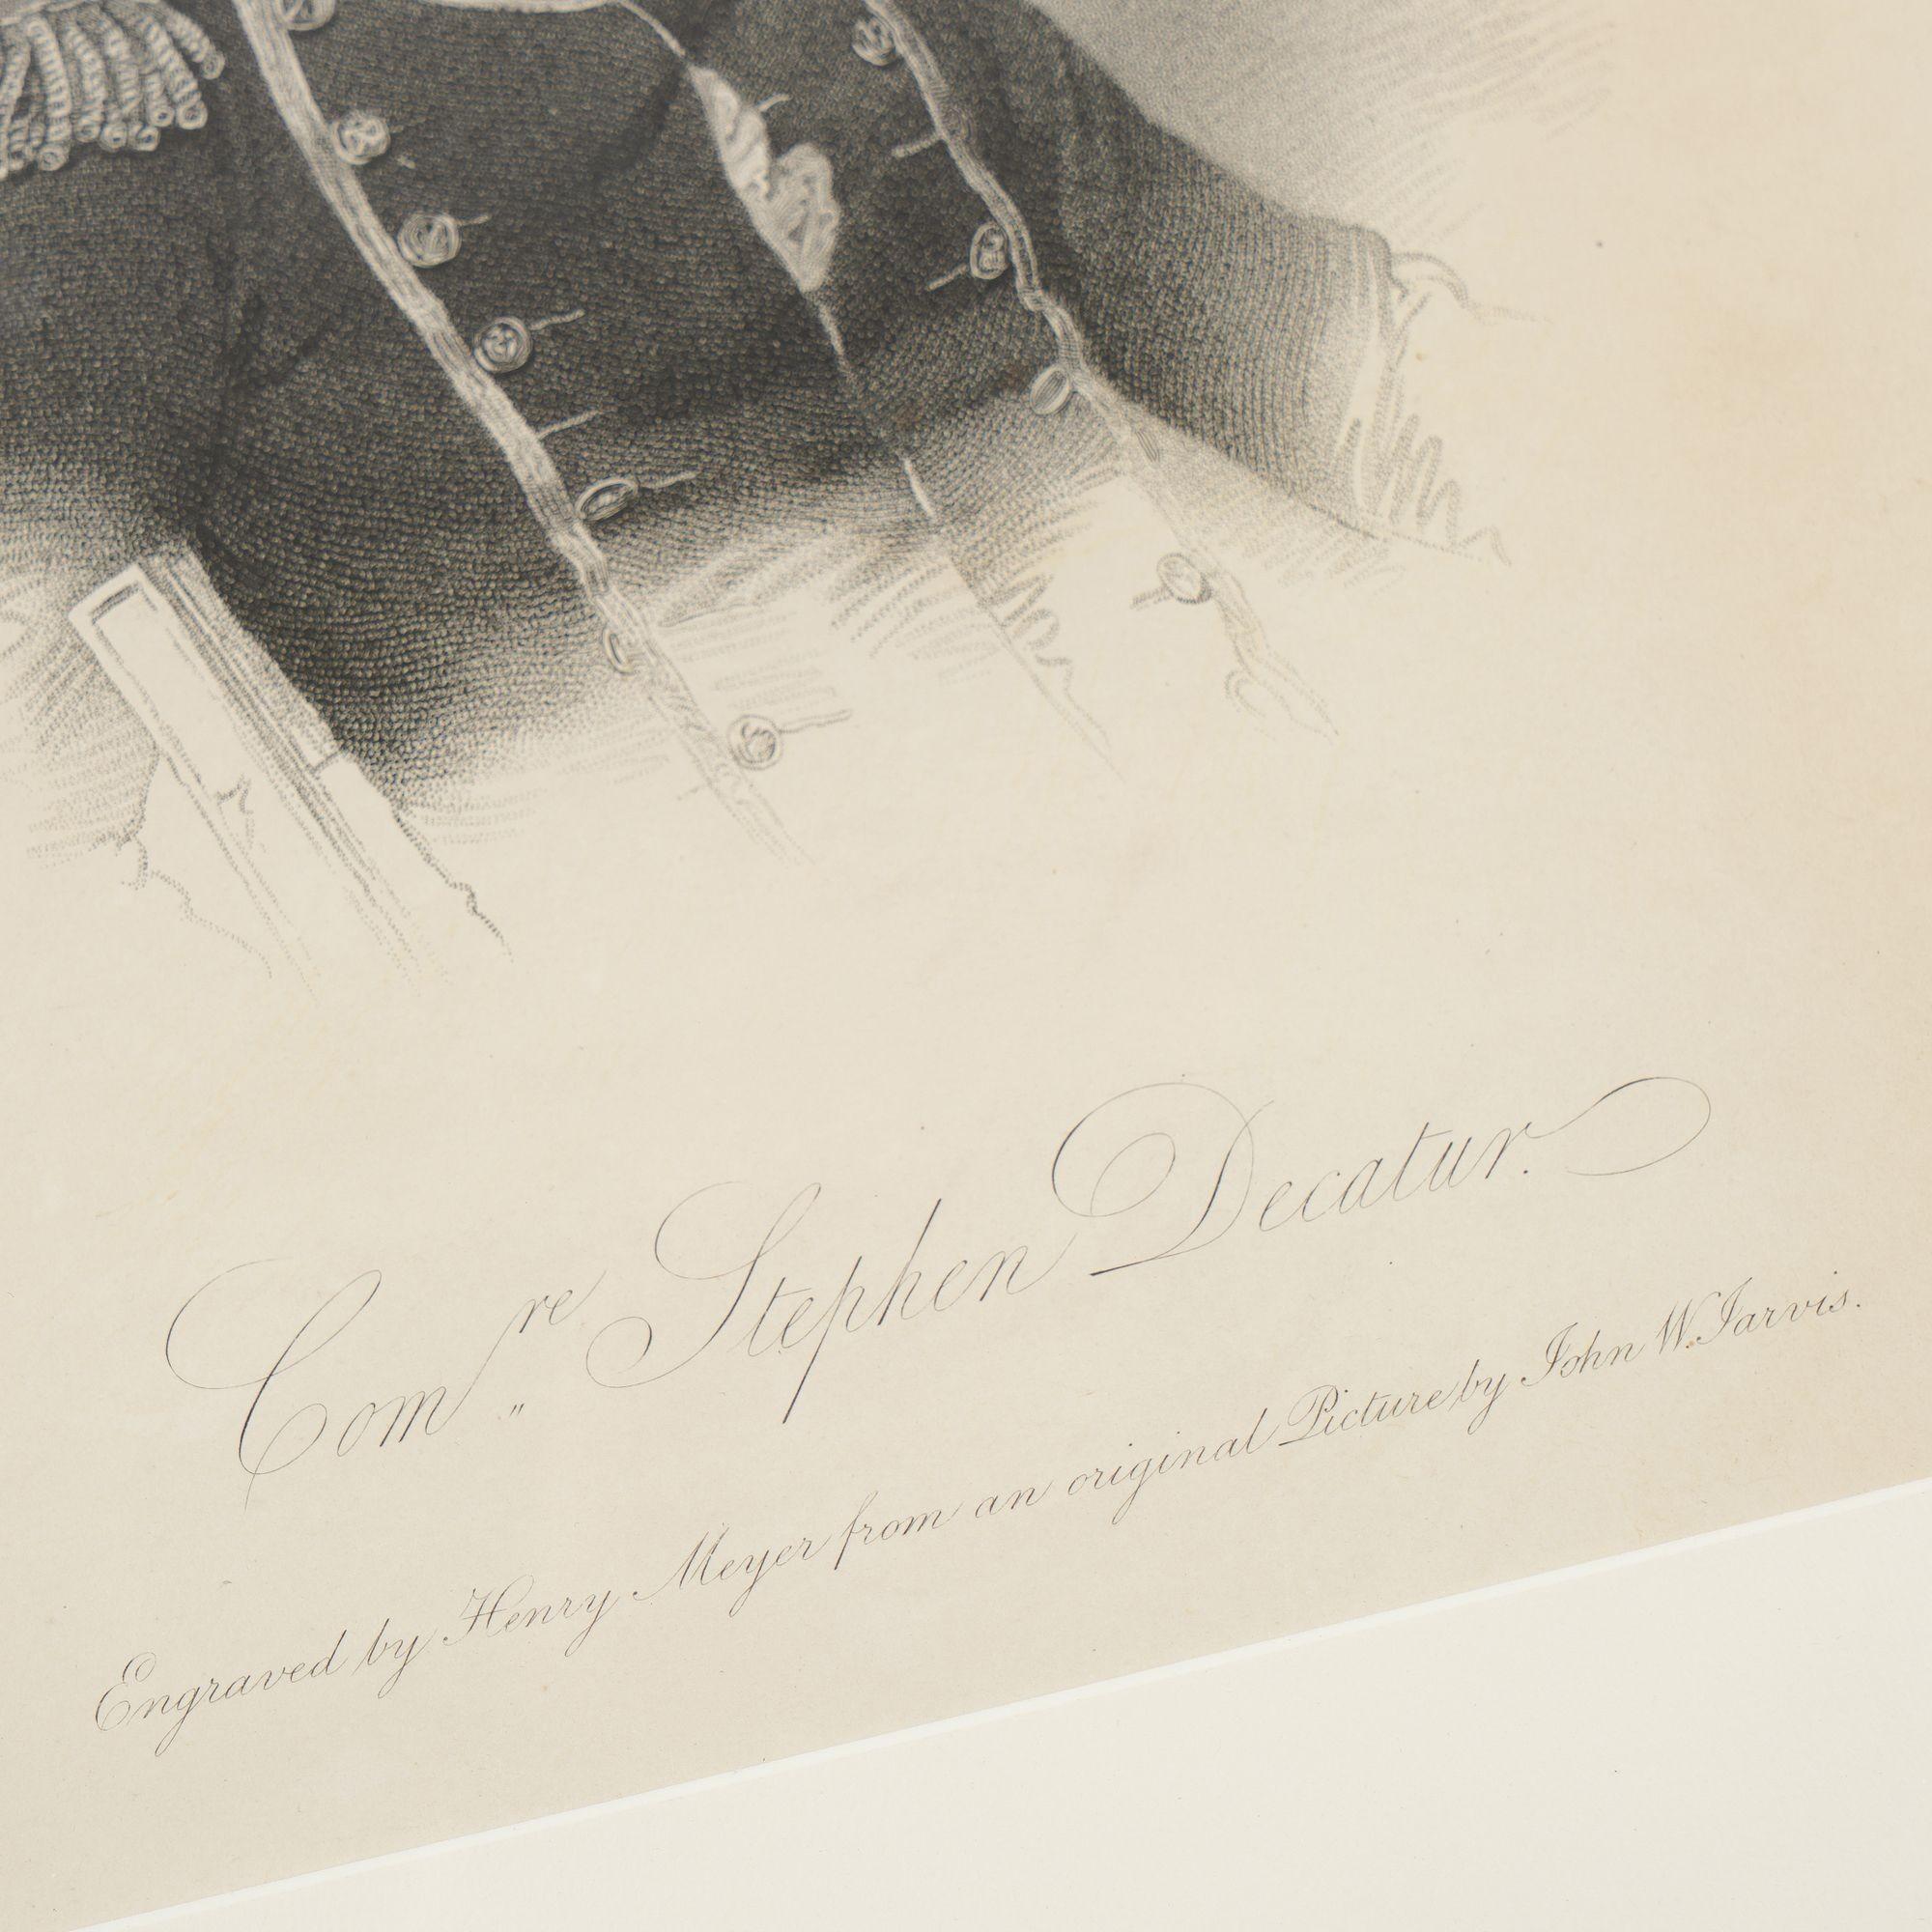 Com,,re Stephen Decatur.
Engraved by Henry Meyer from an original Picture by John W. Jarvis.